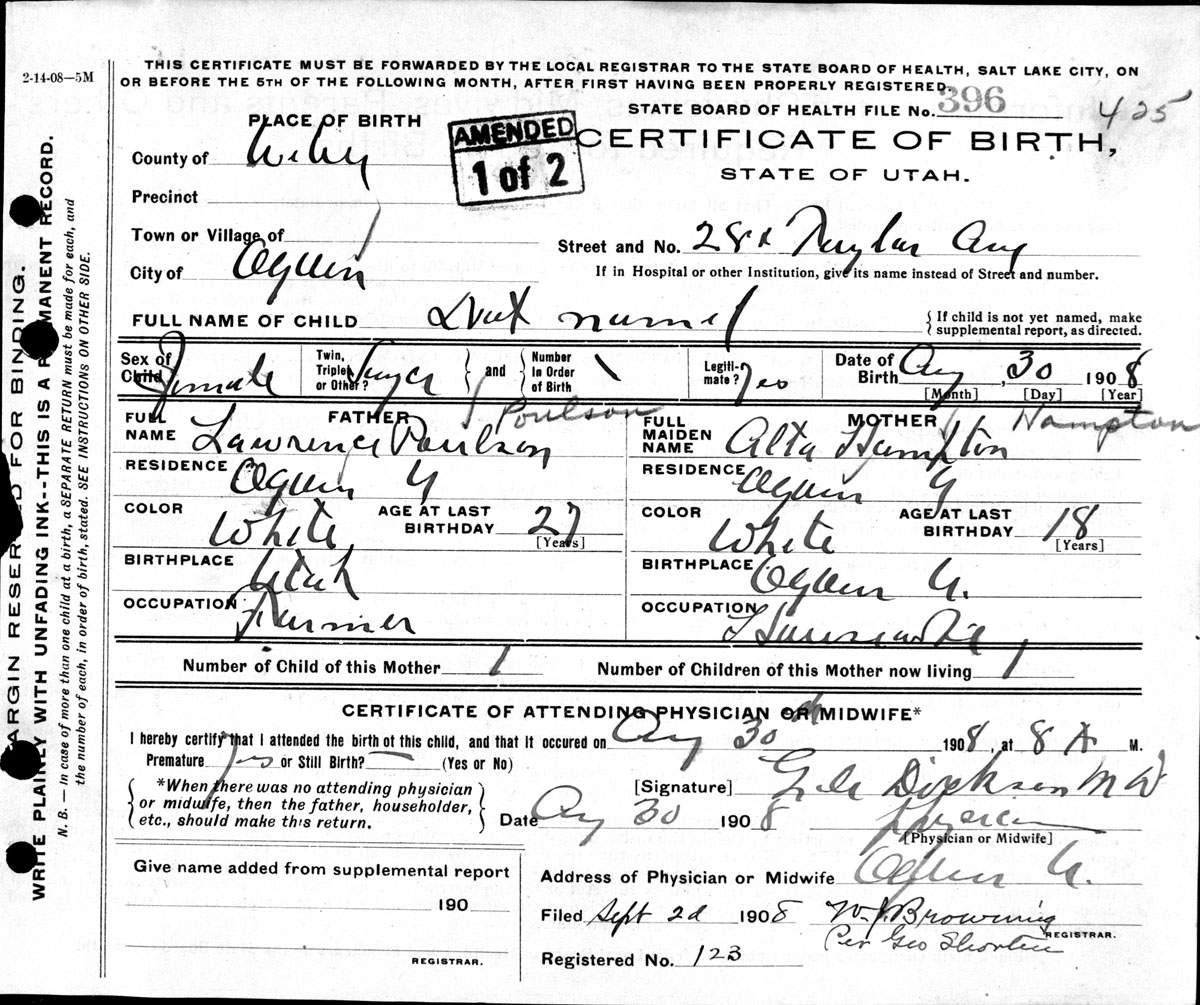 2-14-08—5M
THIS CERTIFICATE MUST BE FORWARDED BY THE LOCAL REGISTRAR TO THE STATE BOARD OF HEALTH, SALT LAKE CITY, ON
OR BEFORE THE 5TH OF THE FOLLOWING MONTH, AFTER FIRST HAVING BEEN PROPERLY REGISTERED.
STATE BOARD OF HEALTH FILE No. 396 425
PLACE OF BIRTH
AMENDED
1 of 2
CERTIFICATE OF BIRTH,
STATE OF UTAH.
County of
Precinct
Town or Village of
City of Ogden
Street and No. 28
If in Hospital or other Institution, give its name instead of Street and number.
FULL NAME OF CHILD
If child is not yet named, make
supplemental report, as directed.
Sex of Child Female
Twin, Triplet or Other? and Number In Order of Birth
Legiti-mate? Yes
Date of Birth Aug, 30 1908
[Month] [Day] [Year]
FATHER Poulson
FULL NAME Lawrence Poulson
RESIDENCE Ogden U
COLOR White
AGE AT LAST BIRTHDAY 27
[Years]
BIRTHPLACE Utah
OCCUPATION Farmer
MOTHER Hampton
FULL MAIDEN NAME Alta Hampton
RESIDENCE Ogden U
COLOR White
AGE AT LAST BIRTHDAY 18
[Years]
BIRTHPLACE Ogden U.
OCCUPATION Housewife
Number of Child of this Mother 1
Number of Children of this Mother now living 1
CERTIFICATE OF ATTENDING PHYSICIAN OR MIDWIFE*
I hereby certify that I attended the birth of this child, and that it occured on Aug 30th 1908, at 8 A M.
Premature Yes or Still Birth? — (Yes or No)
*When there was no attending physician
or midwife, then the father, householder,
etc., should make this return.
[Signature] Dickson M D
Date Aug 30 1908
[Physician or Midwife]
Give name added from supplemental report
190
REGISTRAR.
Address of Physician or Midwife Ogden U.
Filed Sept 2d 1908 Browning
REGISTRAR.
Per Geo Shorten
Registered No. 123
MARGIN RESERVED FOR BINDING.
WRITE PLAINLY WITH UNFADING INK--THIS IS A PERMANENT RECORD.
N. B. — In case of more than one child at a birth, a SEPARATE RETURN must be made for each, and
the number of each, in order of birth, stated. SEE INSTRUCTIONS ON OTHER SIDE.